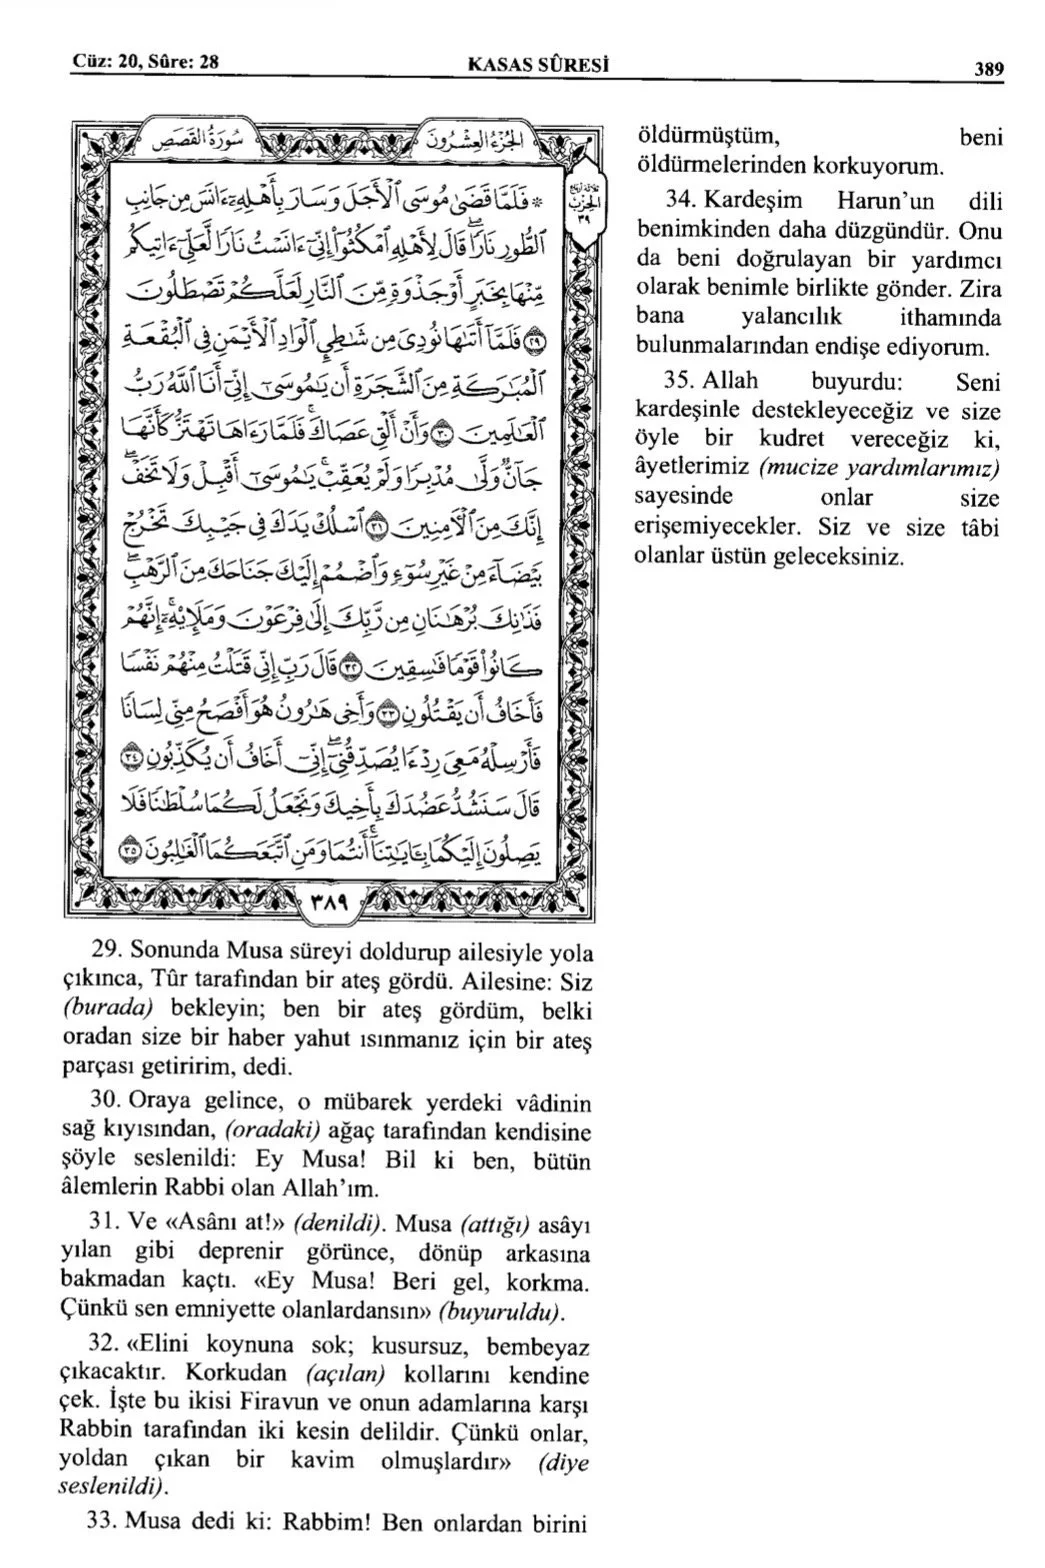 Cüz: 20, Sûre: 28
KASAS SÛRESİ
389
سُورَةُ القَصَصِ
الجُزْءُ العِشْرُونَ
ثلاثة أرباع
الحزب
٣٩
* فَلَمَّا قَضَىٰ مُوسَى ٱلْأَجَلَ وَسَارَ بِأَهْلِهِۦٓ ءَانَسَ مِن جَانِبِ
ٱلطُّورِ نَارًاۖ قَالَ لِأَهْلِهِ ٱمْكُثُوٓا۟ إِنِّىٓ ءَانَسْتُ نَارًا لَّعَلِّىٓ ءَاتِيكُم
مِّنْهَا بِخَبَرٍ أَوْ جَذْوَةٍ مِّنَ ٱلنَّارِ لَعَلَّكُمْ تَصْطَلُونَ
٢٩ فَلَمَّآ أَتَىٰهَا نُودِىَ مِن شَٰطِئِ ٱلْوَادِ ٱلْأَيْمَنِ فِى ٱلْبُقْعَةِ
ٱلْمُبَٰرَكَةِ مِنَ ٱلشَّجَرَةِ أَن يَٰمُوسَىٰٓ إِنِّىٓ أَنَا ٱللَّهُ رَبُّ
ٱلْعَٰلَمِينَ ٣٠ وَأَنْ أَلْقِ عَصَاكَۚ فَلَمَّا رَءَاهَا تَهْتَزُّ كَأَنَّهَا
جَآنٌّ وَلَّىٰ مُدْبِرًا وَلَمْ يُعَقِّبْۚ يَٰمُوسَىٰٓ أَقْبِلْ وَلَا تَخَفْۖ
إِنَّكَ مِنَ ٱلْءَامِنِينَ ٣١ ٱسْلُكْ يَدَكَ فِى جَيْبِكَ تَخْرُجْ
بَيْضَآءَ مِنْ غَيْرِ سُوٓءٍ وَٱضْمُمْ إِلَيْكَ جَنَاحَكَ مِنَ ٱلرَّهْبِۖ
فَذَٰنِكَ بُرْهَٰنَانِ مِن رَّبِّكَ إِلَىٰ فِرْعَوْنَ وَمَلَإِي۟هِۦٓۚ إِنَّهُمْ
كَانُوا۟ قَوْمًا فَٰسِقِينَ ٣٢ قَالَ رَبِّ إِنِّى قَتَلْتُ مِنْهُمْ نَفْسًا
فَأَخَافُ أَن يَقْتُلُونِ ٣٣ وَأَخِى هَٰرُونُ هُوَ أَفْصَحُ مِنِّى لِسَانًا
فَأَرْسِلْهُ مَعِىَ رِدْءًا يُصَدِّقُنِىٓۖ إِنِّىٓ أَخَافُ أَن يُكَذِّبُونِ ٣٤
قَالَ سَنَشُدُّ عَضُدَكَ بِأَخِيكَ وَنَجْعَلُ لَكُمَا سُلْطَٰنًا فَلَا
يَصِلُونَ إِلَيْكُمَا بِـَٔايَٰتِنَآۚ أَنتُمَا وَمَنِ ٱتَّبَعَكُمَا ٱلْغَٰلِبُونَ ٣٥
٣٨٩
29. Sonunda Musa süreyi doldurup ailesiyle yola
çıkınca, Tûr tarafından bir ateş gördü. Ailesine: Siz
(burada) bekleyin; ben bir ateş gördüm, belki
oradan size bir haber yahut ısınmanız için bir ateş
parçası getiririm, dedi.
30. Oraya gelince, o mübarek yerdeki vâdinin
sağ kıyısından, (oradaki) ağaç tarafından kendisine
şöyle seslenildi: Ey Musa! Bil ki ben, bütün
âlemlerin Rabbi olan Allah'ım.
31. Ve «Asânı at!» (denildi). Musa (attığı) asâyı
yılan gibi deprenir görünce, dönüp arkasına
bakmadan kaçtı. «Ey Musa! Beri gel, korkma.
Çünkü sen emniyette olanlardansın» (buyuruldu).
32. «Elini koynuna sok; kusursuz, bembeyaz
çıkacaktır. Korkudan (açılan) kollarını kendine
çek. İşte bu ikisi Firavun ve onun adamlarına karşı
Rabbin tarafından iki kesin delildir. Çünkü onlar,
yoldan çıkan bir kavim olmuşlardır» (diye
seslenildi).
33. Musa dedi ki: Rabbim! Ben onlardan birini
öldürmüştüm, beni
öldürmelerinden korkuyorum.
34. Kardeşim Harun'un dili
benimkinden daha düzgündür. Onu
da beni doğrulayan bir yardımcı
olarak benimle birlikte gönder. Zira
bana yalancılık ithamında
bulunmalarından endişe ediyorum.
35. Allah buyurdu: Seni
kardeşinle destekleyeceğiz ve size
öyle bir kudret vereceğiz ki,
âyetlerimiz (mucize yardımlarımız)
sayesinde onlar size
erişemiyecekler. Siz ve size tâbi
olanlar üstün geleceksiniz.